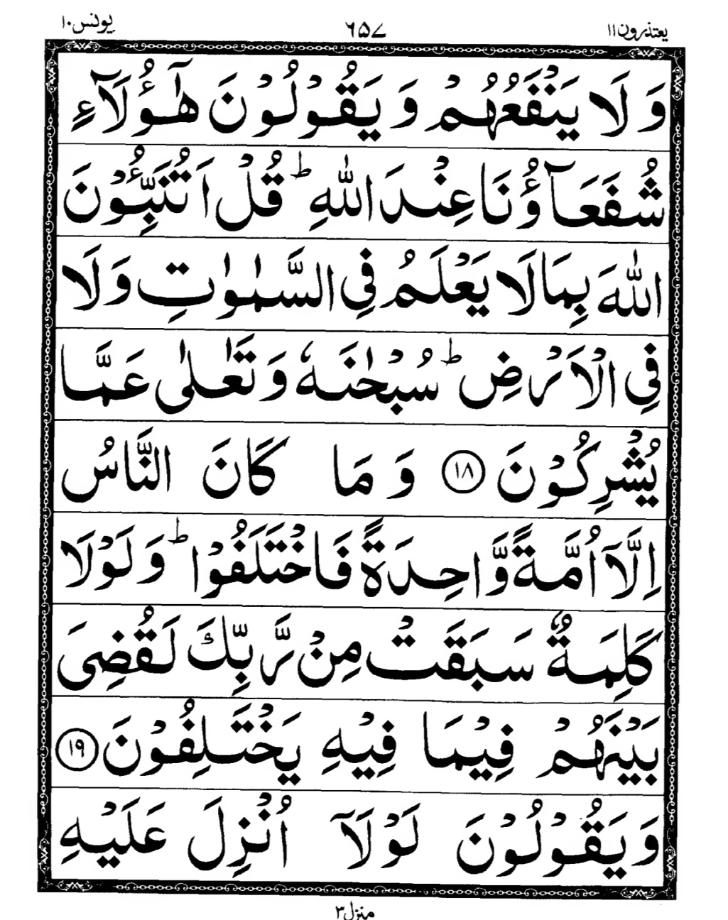 یعتذرون ۱۱ ۶۵۷ یونس ۱۰
وَ لَا یَنْفَعُهُمْ وَ یَقُوْلُوْنَ هٰۤؤُلَآءِ
شُفَعَآؤُنَا عِنْدَ اللّٰهِ ؕ قُلْ اَتُنَبِّـُٔوْنَ
اللّٰهَ بِمَا لَا یَعْلَمُ فِی السَّمٰوٰتِ وَ لَا
فِی الْاَرْضِ ؕ سُبْحٰنَهٗ وَ تَعٰلٰی عَمَّا
یُشْرِكُوْنَ ﴿۱۸﴾ وَ مَا كَانَ النَّاسُ
اِلَّاۤ اُمَّةً وَّاحِدَةً فَاخْتَلَفُوْا ؕ وَ لَوْلَا
كَلِمَةٌ سَبَقَتْ مِنْ رَّبِّكَ لَقُضِیَ
بَیْنَهُمْ فِیْمَا فِیْهِ یَخْتَلِفُوْنَ ﴿۱۹﴾
وَ یَقُوْلُوْنَ لَوْلَاۤ اُنْزِلَ عَلَیْهِ
منزل ۳